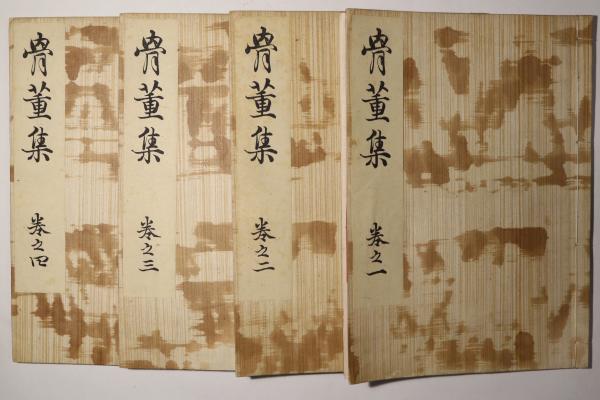 骨董集
巻之一
骨董集
巻之二
骨董集
巻之三
骨董集
巻之四